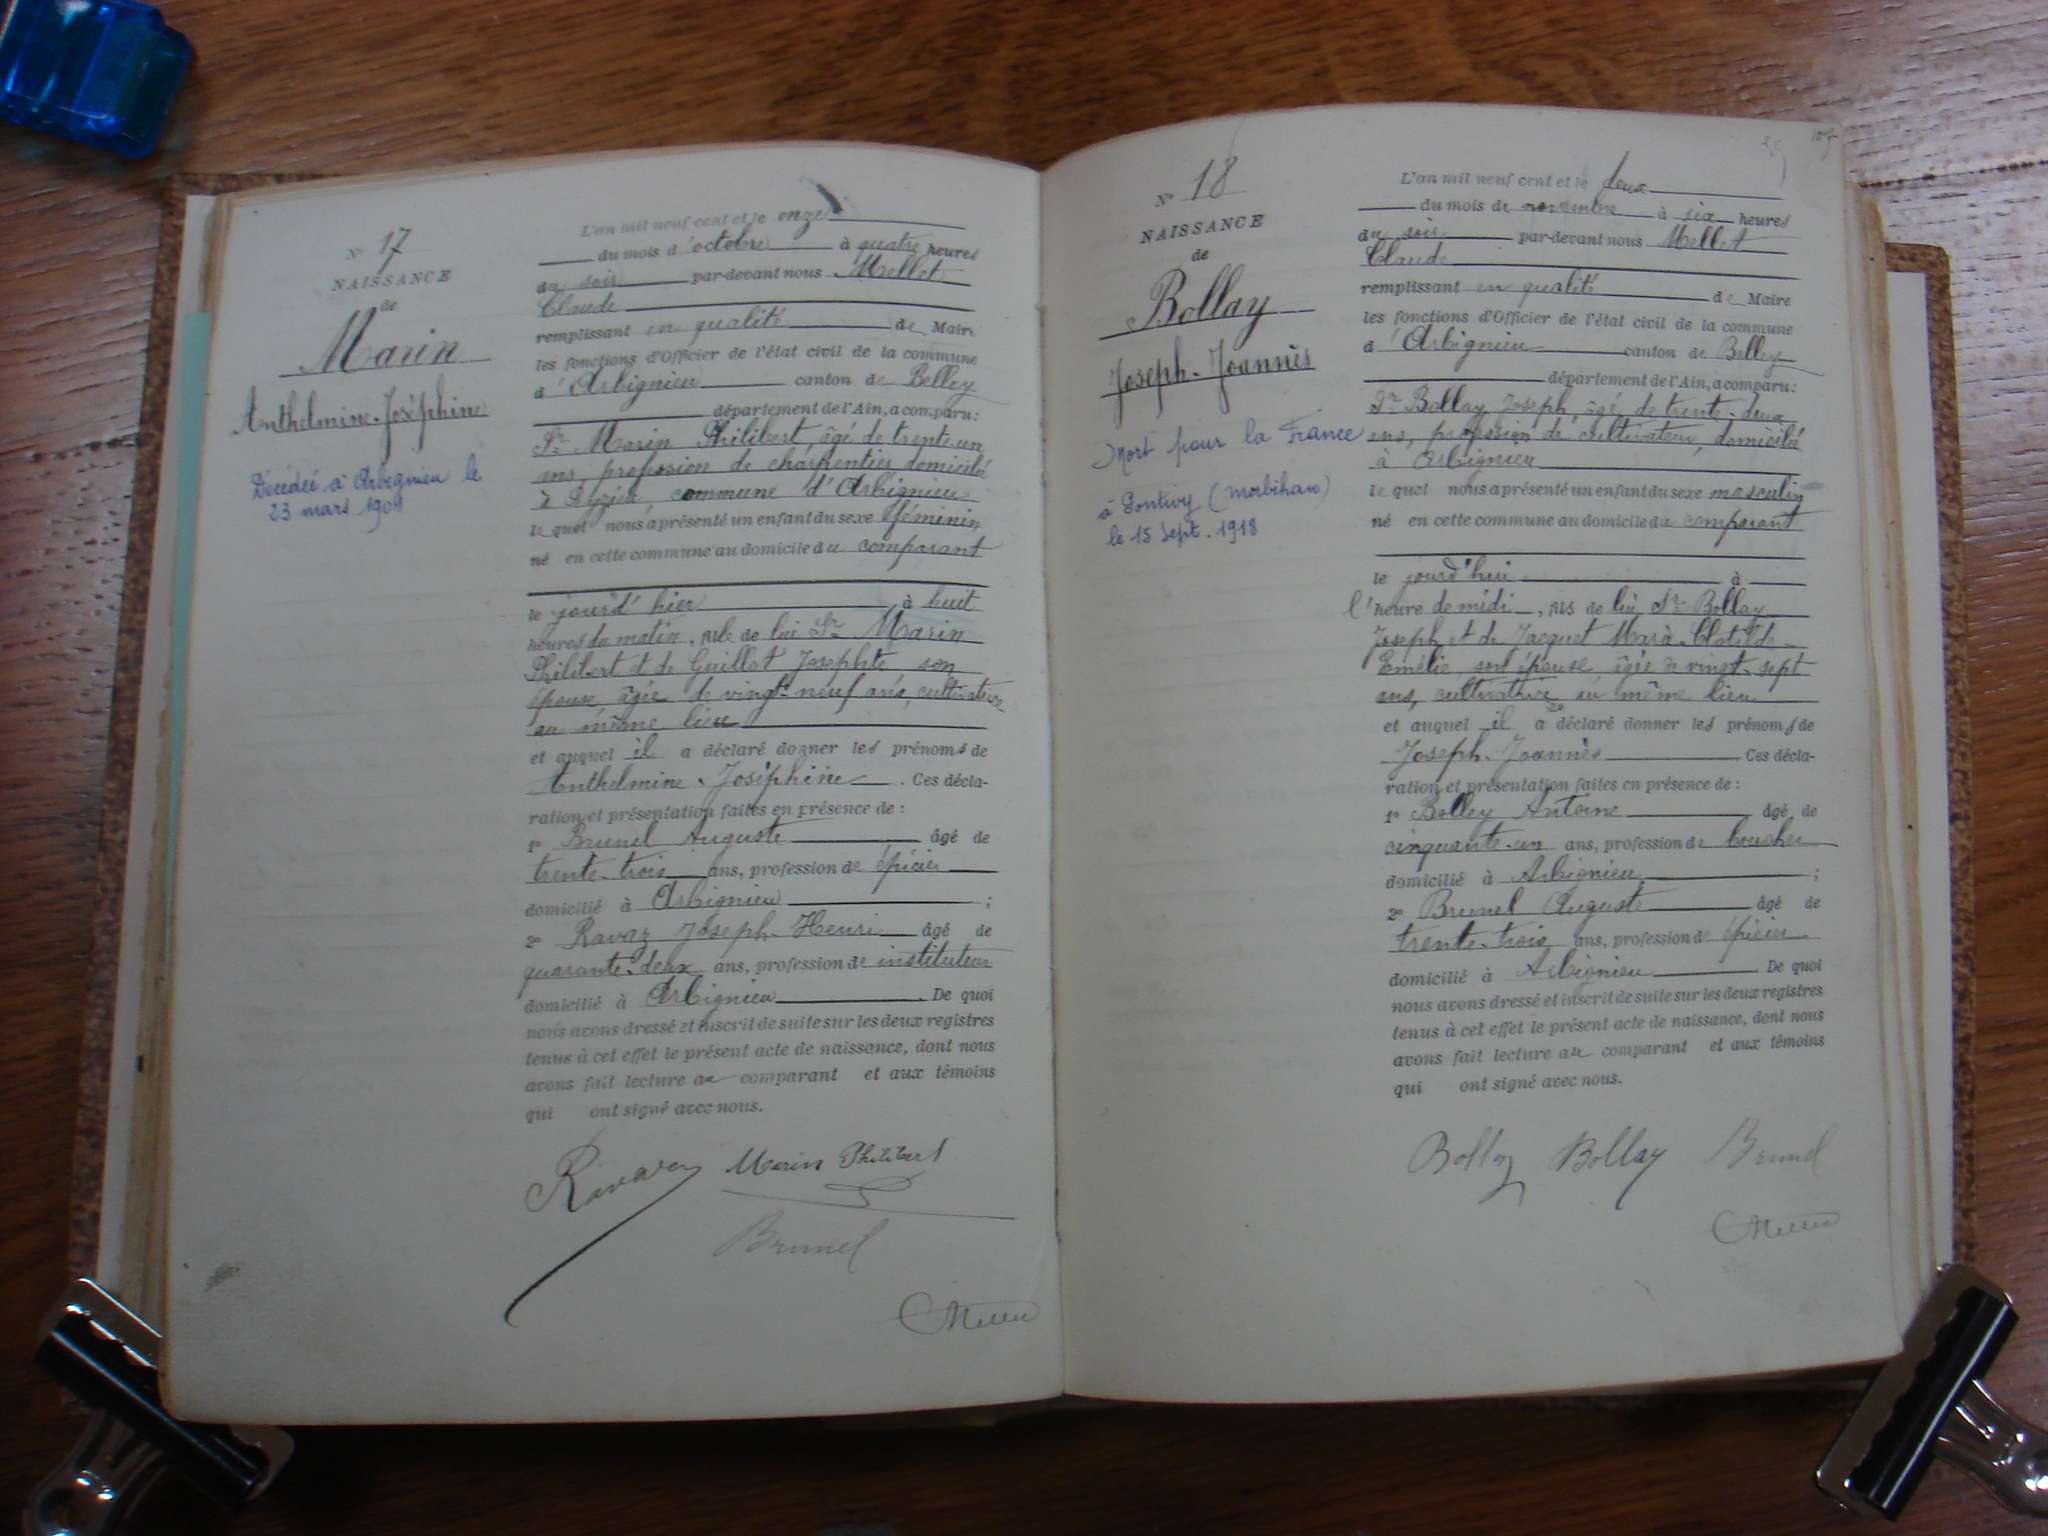 N° 17
NAISSANCE
de
Marin
Anthelmine-Joséphine
Décédée à Arbignieu le
23 mars
L'an mil neuf cent et le onze
du mois d'octobre à quatre heures
du soir par-devant nous Mellet
Claude
remplissant en qualité de Maire
les fonctions d'Officier de l'état civil de la commune
d'Arbignieu canton de Belley
département de l'Ain, a comparu:
Sr Marin Philibert, âgé de trente-un
ans, profession de charpentier, domicilié
à commune d'Arbignieu
le quel nous a présenté un enfant du sexe féminin
né en cette commune au domicile du comparant
le jourd'hier à huit
heures du matin, née de lui Sr Marin
Philibert et de Guillot Josephte son
épouse, âgée de vingt-neuf ans, cultivatrice
au même lieu
et auquel il a déclaré donner les prénoms de
Anthelmine-Joséphine. Ces décla-
ration et présentation faites en présence de :
1° Brunel Auguste âgé de
trente-trois ans, profession de épicier
domicilié à Arbignieu ;
2° Ravaz Joseph-Henri âgé de
quarante-deux ans, profession de instituteur
domicilié à Arbignieu. De quoi
nous avons dressé et inscrit de suite sur les deux registres
tenus à cet effet le présent acte de naissance, dont nous
avons fait lecture au comparant et aux témoins
qui ont signé avec nous.
Ravaz Marin Philibert
Brunel
N° 18
NAISSANCE
de
Bollay
Joseph-Joannès
Mort pour la France
à Pontivy (Morbihan)
le 15 Sept. 1918
L'an mil neuf cent et le deux
du mois de novembre à six heures
du soir par-devant nous Mellet
Claude
remplissant en qualité de Maire
les fonctions d'Officier de l'état civil de la commune
d'Arbignieu canton de Belley
département de l'Ain, a comparu:
Sr Bollay Joseph, âgé de trente-deux
ans, profession de cultivateur, domicilié
à Arbignieu
le quel nous a présenté un enfant du sexe masculin
né en cette commune au domicile du comparant
le jourd'hui à
l'heure de midi, fils de lui Sr Bollay
Joseph et de Jacquet Marie-Clotilde
Emélie son épouse âgée de vingt-sept
ans, cultivatrice au même lieu
et auquel il a déclaré donner les prénoms de
Joseph-Joannès Ces décla-
ration et présentation faites en présence de :
1° Bolley Antoine âgé de
cinquante-un ans, profession de boucher
domicilié à Arbignieu ;
2° Brunel Auguste âgé de
trente-trois ans, profession de épicier
domicilié à Arbignieu De quoi
nous avons dressé et inscrit de suite sur les deux registres
tenus à cet effet le présent acte de naissance, dont nous
avons fait lecture au comparant et aux témoins
qui ont signé avec nous.
Bollay Bollay Brunel